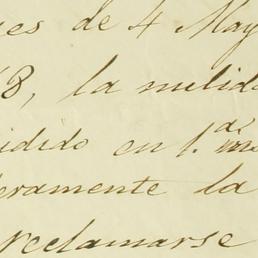 es de 4 May
8, la nulida
idido en 1.a in
eramente la
reclamarse